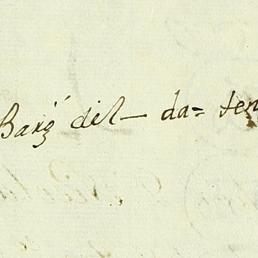 Barg̃ del– da= ten